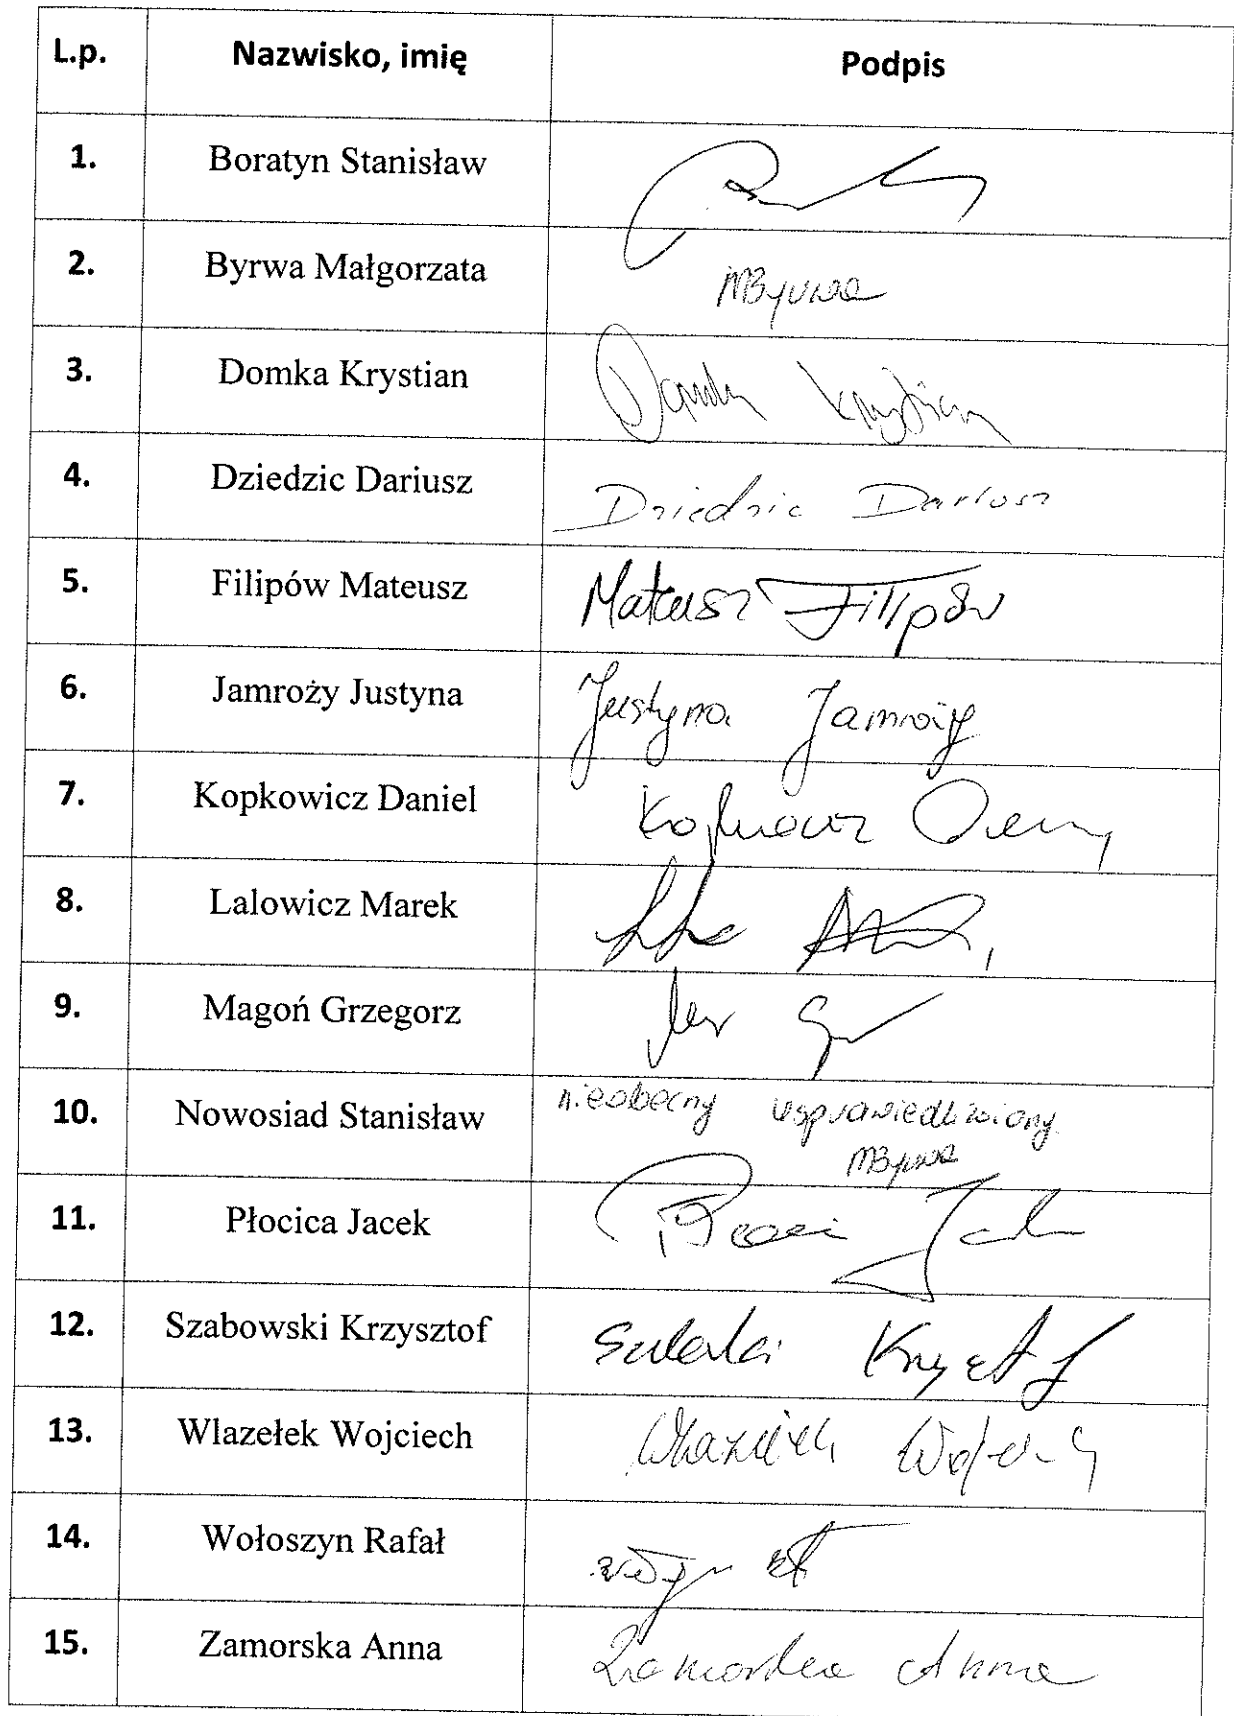 L.p. Nazwisko, imię Podpis
1. Boratyn Stanisław
2. Byrwa Małgorzata MByrwa
3. Domka Krystian Domka Krystian
4. Dziedzic Dariusz Dziedzic Dariusz
5. Filipów Mateusz Mateusz Filipów
6. Jamroży Justyna Justyna Jamroży
7. Kopkowicz Daniel
8. Lalowicz Marek
9. Magoń Grzegorz
10. Nowosiad Stanisław nieobecny usprawiedliwiony
MByrwa
11. Płocica Jacek
12. Szabowski Krzysztof
13. Wlazełek Wojciech
14. Wołoszyn Rafał
15. Zamorska Anna Zamorska Anna